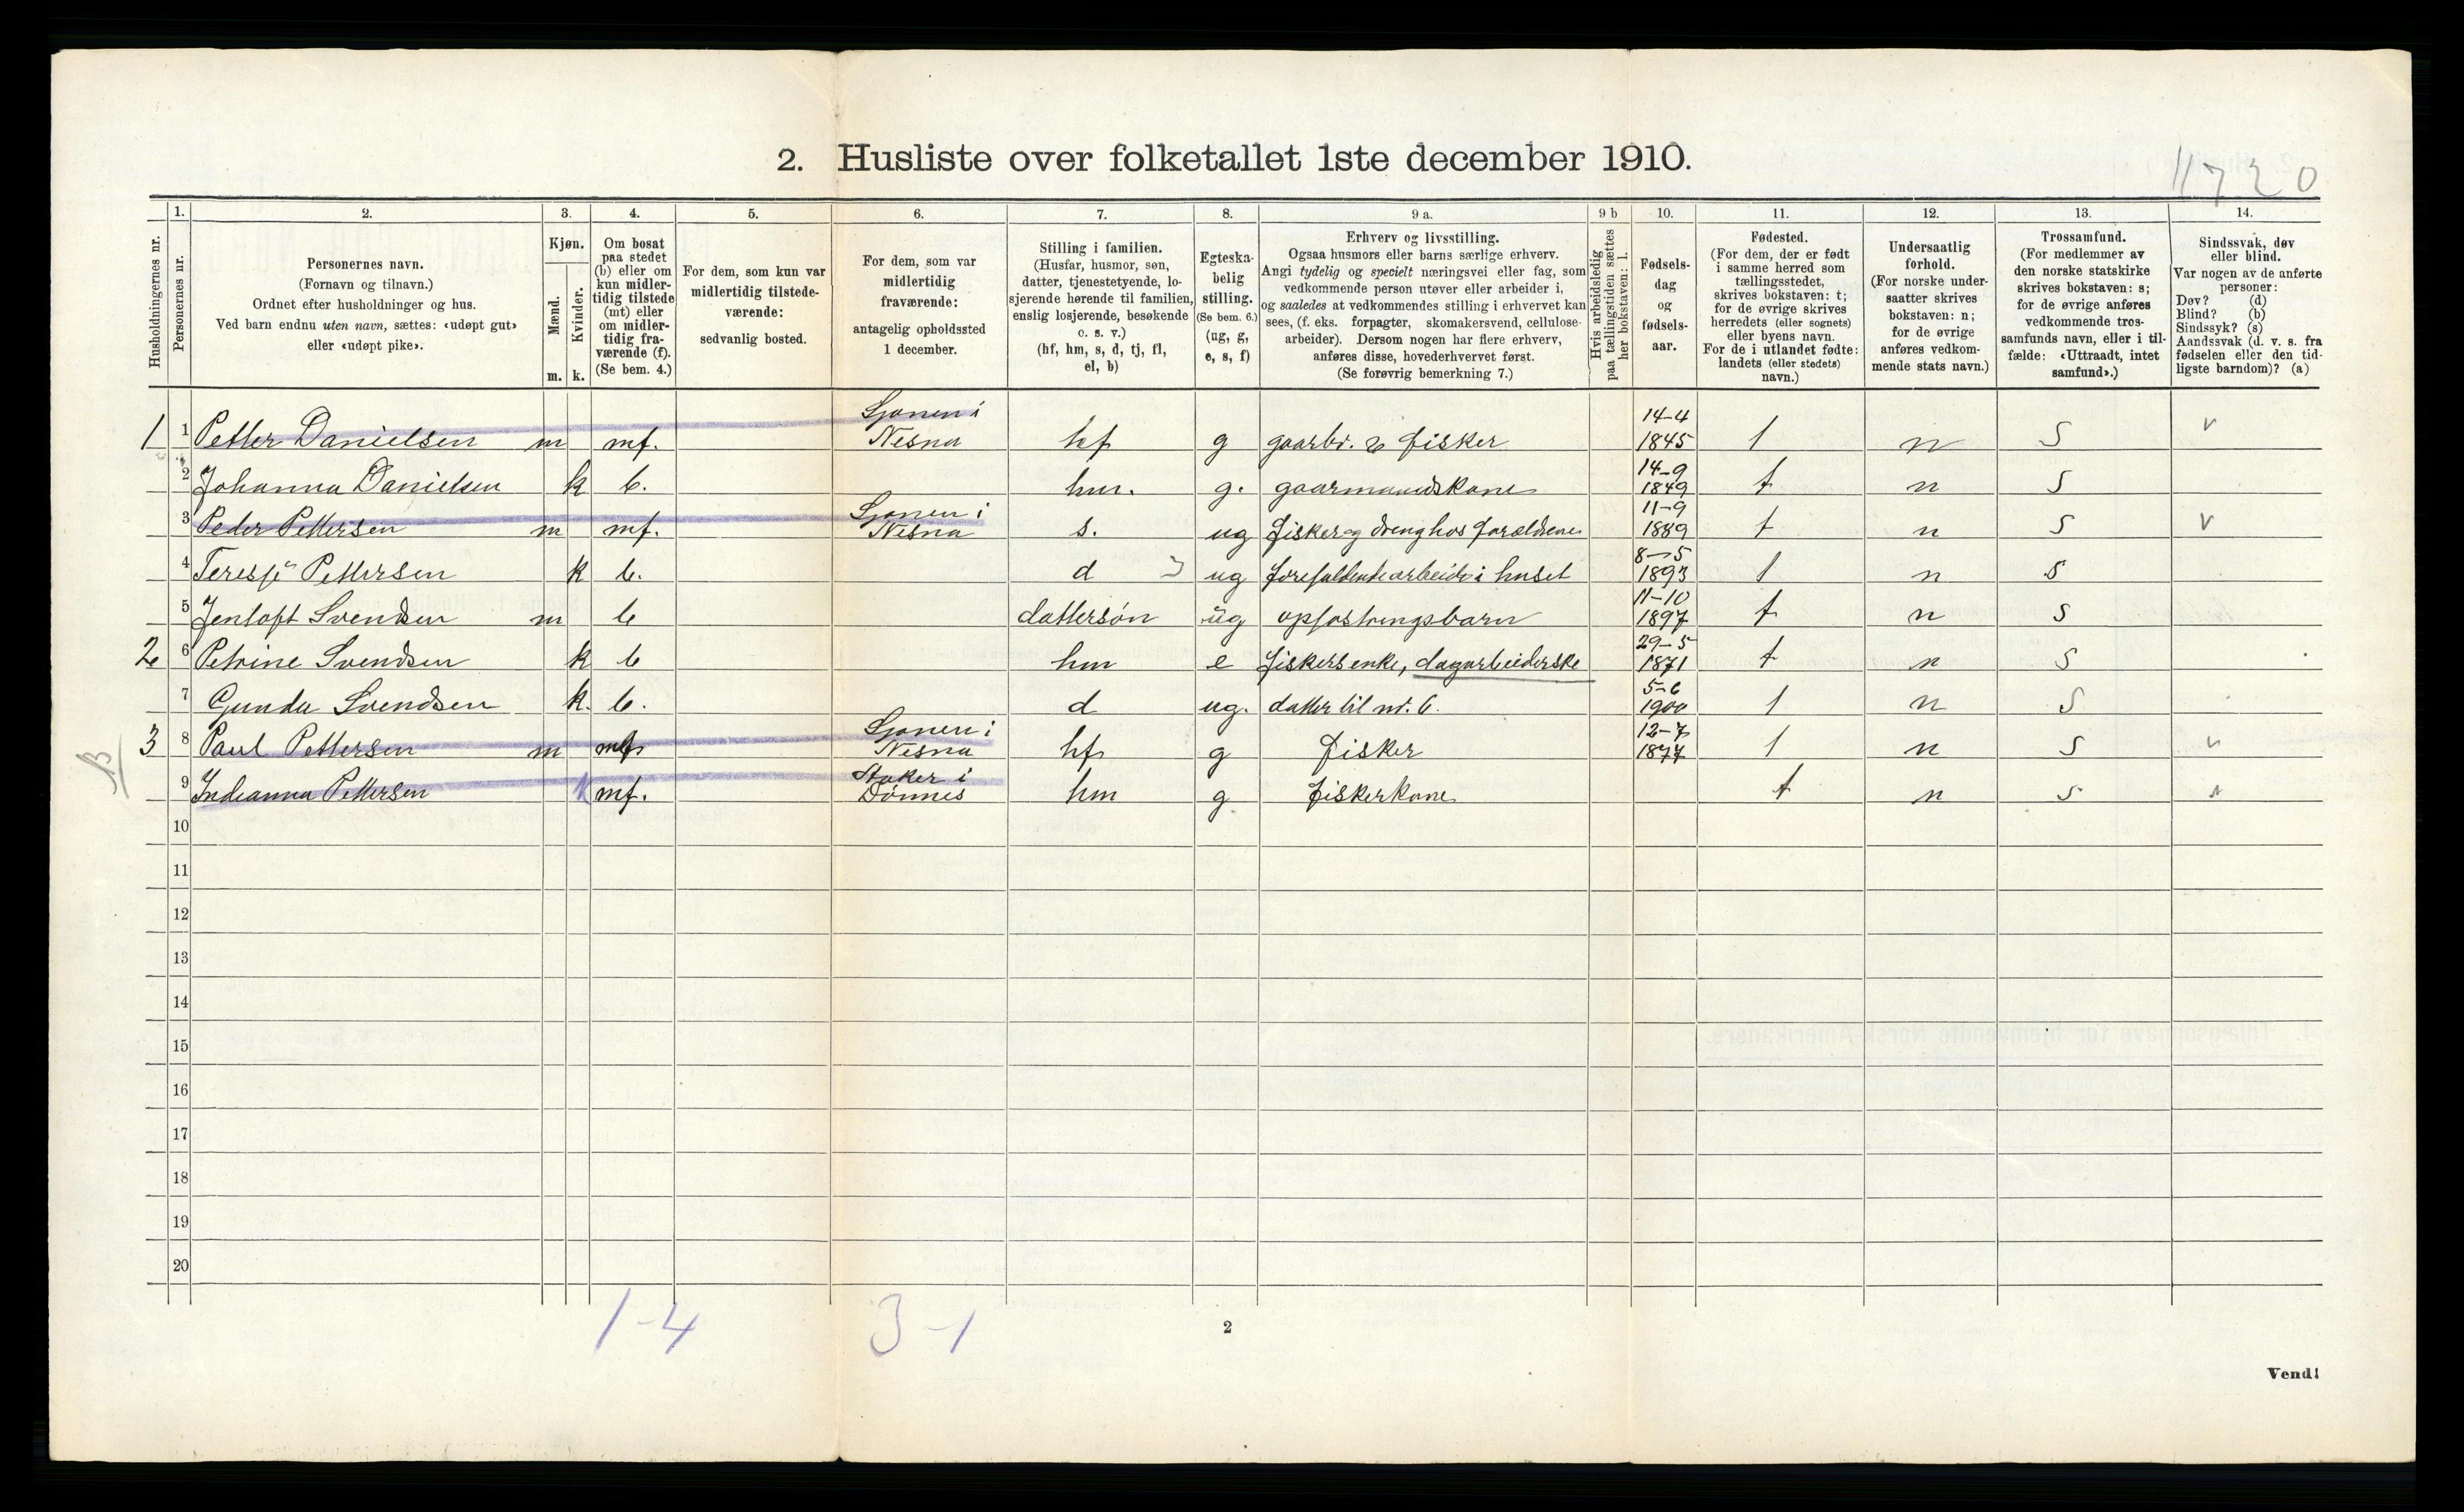 2. Husliste over folketallet 1ste december 1910.
11720
Husholdningernes nr.
1.
Personernes nr.
2.
Personernes navn.
(Fornavn og tilnavn.)
Ordnet efter husholdninger og hus.
Ved barn endnu uten navn, sættes: «udøpt gut»
eller «udøpt pike».
3.
Kjøn.
Mænd.
Kvinder.
m. k.
4.
Om bosat
paa stedet
(b) eller om
kun midler-
tidig tilstede
(mt) eller
om midler-
tidig fra-
værende (f).
(Se bem. 4.)
5.
For dem, som kun var
midlertidig tilstede-
værende:
sedvanlig bosted.
6.
For dem, som var
midlertidig
fraværende:
antagelig opholdssted
1 december.
7.
Stilling i familien.
(Husfar, husmor, søn,
datter, tjenestetyende, lo-
sjerende hørende til familien,
enslig losjerende, besøkende
o. s. v.)
(hf, hm, s, d, tj, fl,
el, b)
8.
Egteska-
belig
stilling.
(Se bem. 6.)
(ug, g,
e, s, f)
9 a.
Erhverv og livsstilling.
Ogsaa husmors eller barns særlige erhverv.
Angi tydelig og specielt næringsvei eller fag, som
vedkommende person utøver eller arbeider i,
og saaledes at vedkommendes stilling i erhvervet kan
sees, (f. eks. forpagter, skomakersvend, cellulose-
arbeider). Dersom nogen har flere erhverv,
anføres disse, hovederhvervet først.
(Se forøvrig bemerkning 7.)
9 b
Hvis arbeidsledig
paa tællingstiden sættes
her bokstaven: l.
10.
Fødsels-
dag
og
fødsels-
aar.
11.
Fødested.
(For dem, der er født
i samme herred som
tællingsstedet,
skrives bokstaven: t;
for de øvrige skrives
herredets (eller sognets)
eller byens navn.
For de i utlandet fødte:
landets (eller stedets)
navn.)
12.
Undersaatlig
forhold.
(For norske under-
saatter skrives
bokstaven: n;
for de øvrige
anføres vedkom-
mende stats navn.)
13.
Trossamfund.
(For medlemmer av
den norske statskirke
skrives bokstaven: s;
for de øvrige anføres
vedkommende tros-
samfunds navn, eller i til-
fælde: «Uttraadt, intet
samfund».)
14.
Sindssvak, døv
eller blind.
Var nogen av de anførte
personer:
Døv? (d)
Blind? (b)
Sindssyk? (s)
Aandssvak (d. v. s. fra
fødselen eller den tid-
ligste barndom)? (a)
1 1 Petter Danielsen m mf. Sjonen i Nesna hf g gaarbr. & fisker 14-4 1845 t n S v
2 Johanna Danielsen k b. hm. g. gaarmandskone 14-9 1849 t n S
3 Peder Pettersen m mf. Sjonen i Nesna s. ug fisker og dreng hos forældrene 11-9 1889 t n S v
4 Teresje Pettersen k b. d ug forefaldende arbeide i huset 8-5 1893 t n S
5 Jentoft Svendsen m b dattersøn ug opfostringsbarn 11-10 1897 t n S
2 6 Petrine Svendsen k b hm e fiskersenke, dagarbeiderske 29-5 1871 t n S
7 Gunda Svendsen k. b. d ug. datter til nr. 6. 5-6 1900 t n S
3 8 Paul Pettersen m mf Sjonen i Nesna hf g fisker 12-7 1877 t n S v
9 Indianna Pettersen k mf. Dønnes hm g fiskerkone t n S
10
11
12
13
14
15
16
17
18
19
20
1-4 3-1
2
Vend!